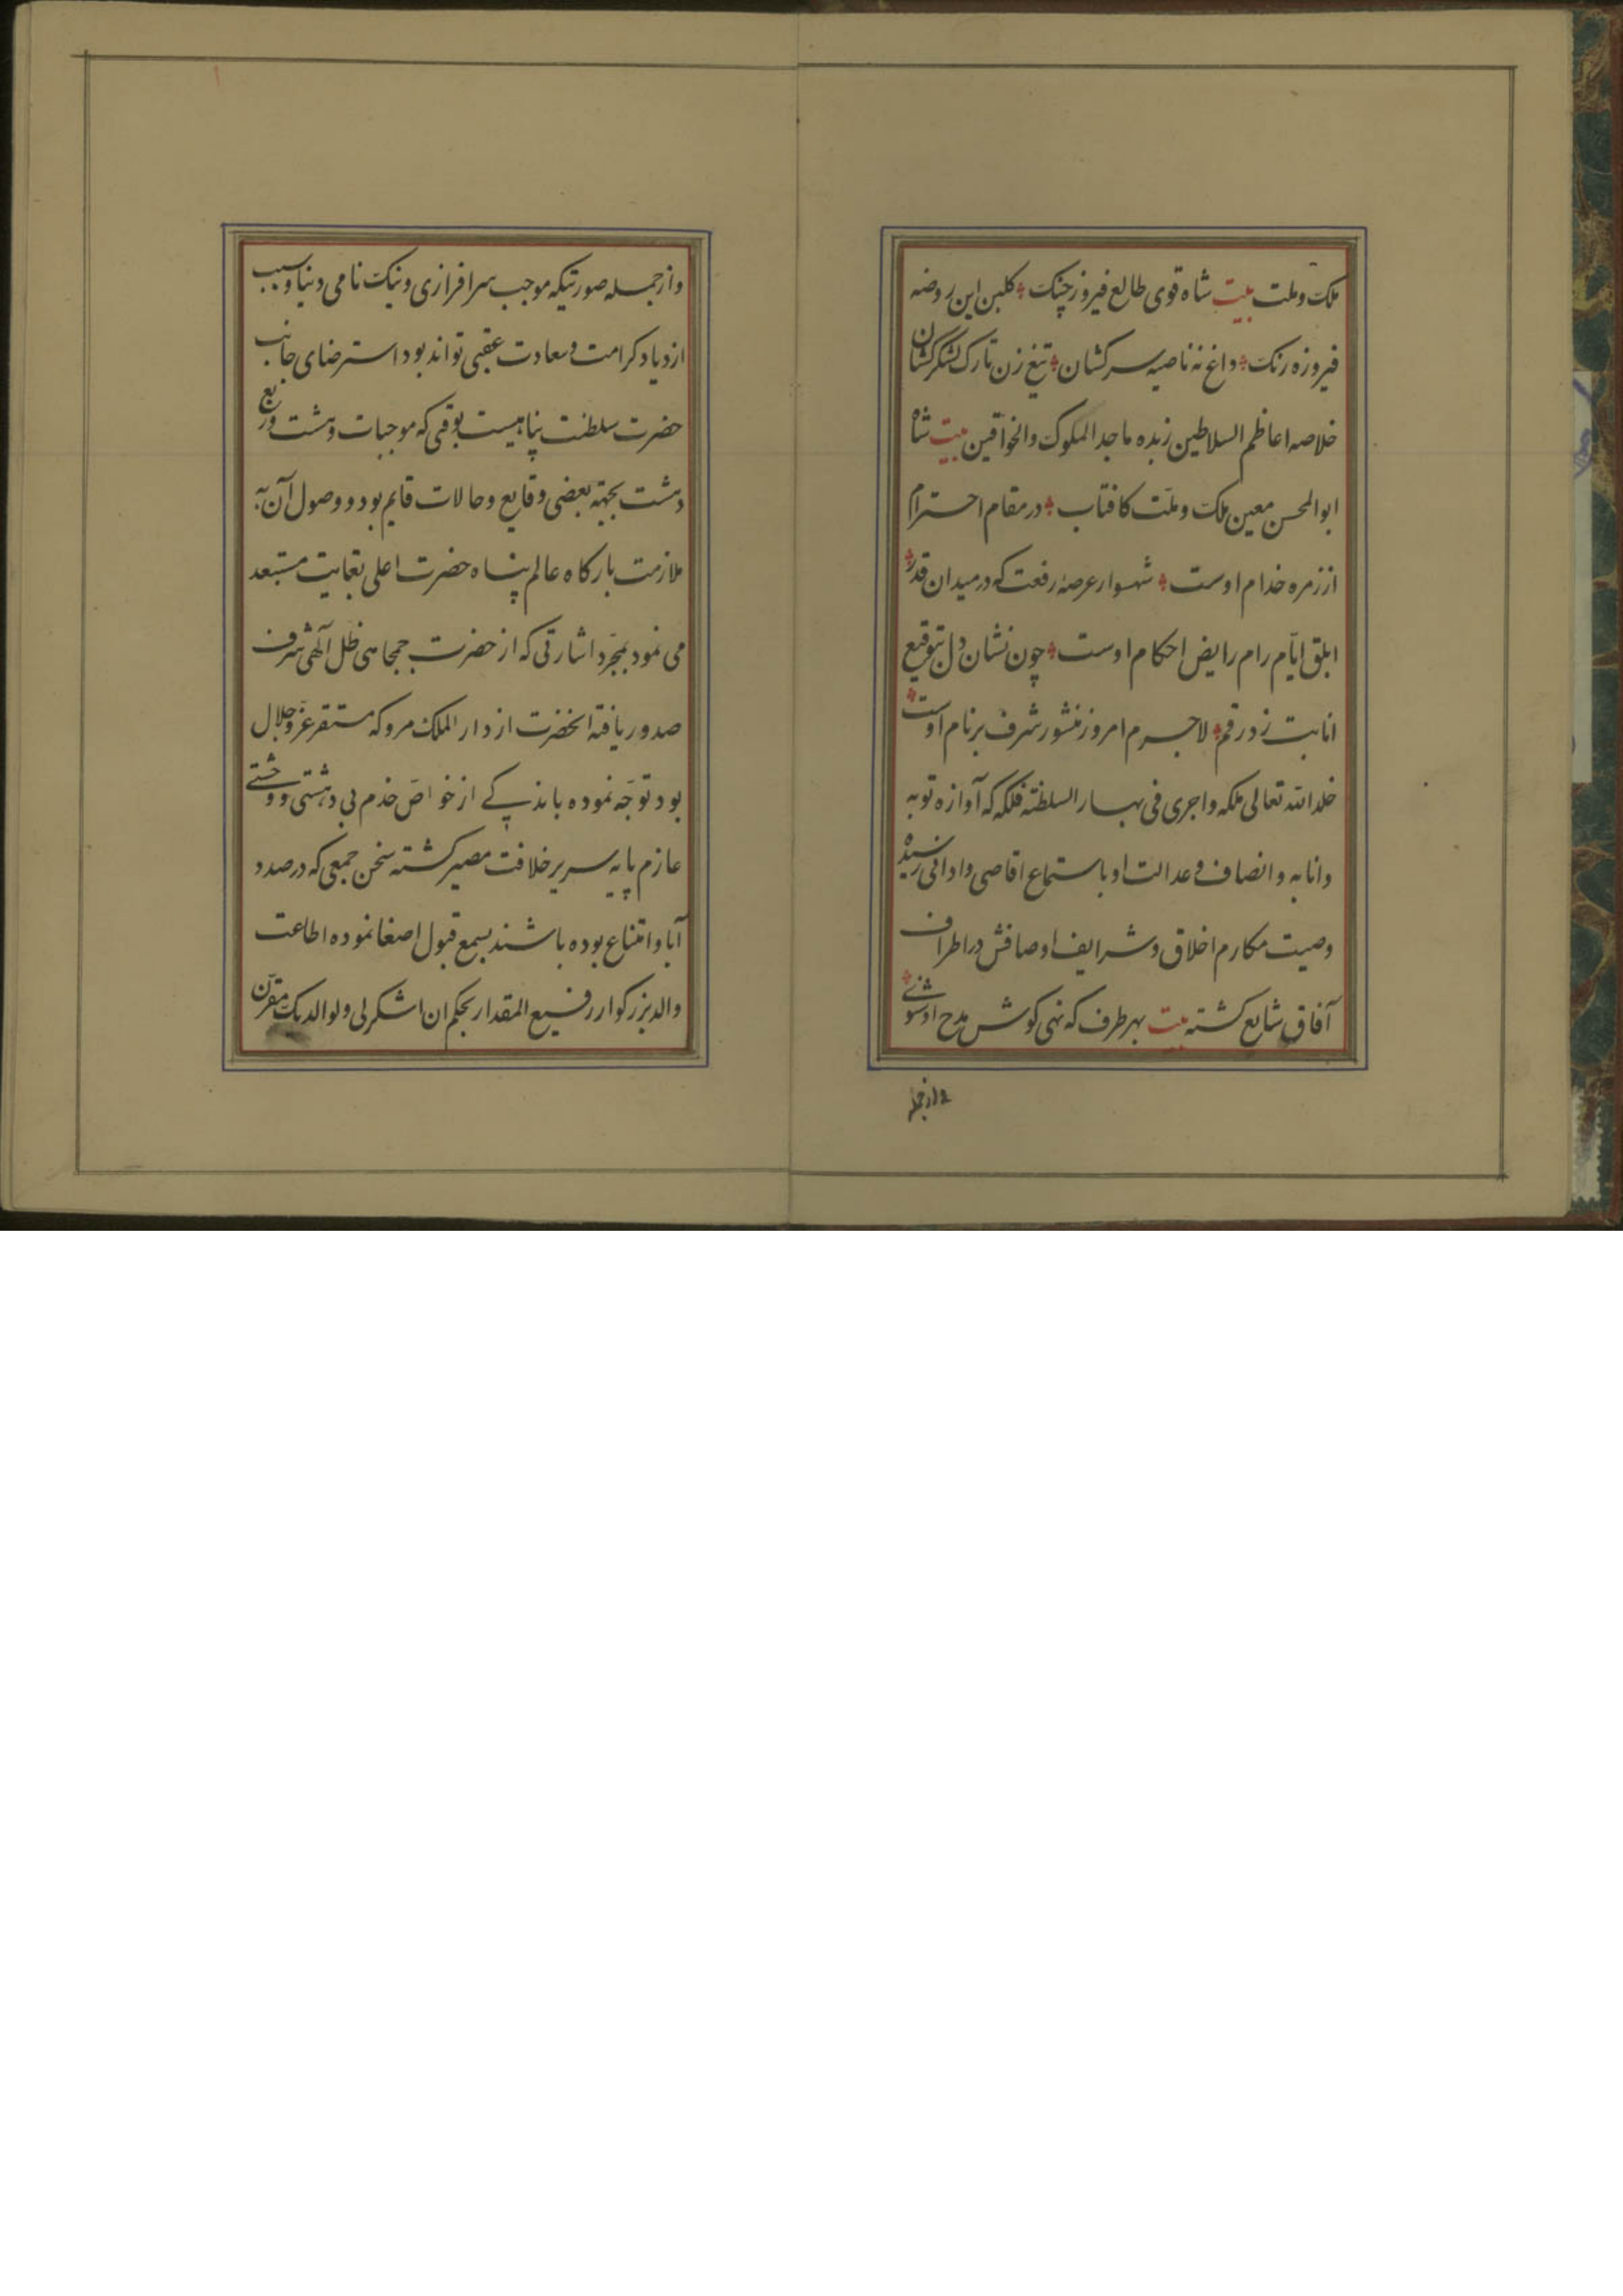 ملک و ملت بیت شاه قوی طالع فیروز چنک کلبن این روضه
فیروزه رنک داغ نه ناصیه سرکشان تیغ زن تارک لشکرکشان
خلاصه اعاظم السلاطین زبده ماجد الملوک والخواقین بیت شاه
ابوالمحسن معین ملک و ملّت کافتاب در مقام احترام
از زمره خدام اوست شهسوار عرصهٔ رفعت که در میدان قدر
ابلق ایّام رام رایض احکام اوست چون نشان دل بتوقیع
انابت زد رقم لاجرم امروز منشور شرف بر نام اوست
خلد الله تعالی ملکه واجری فی بحار السلطنة فلکه که آوازه توبه
وانابه و انصاف و عدالت او باستماع اقاصی و ادانی رسیده
وصیت مکارم اخلاق و شرایف اوصافش در اطراف
آفاق شایع کشته بیت بهر طرف که نهی کوش مدح او شنوی
و از جمله
و از جمله صورتیکه موجب سرافرازی و نیکت نامی دنیا و سبب
ازدیاد کرامت و سعادت عقبی تواند بود استرضای جانب
حضرت سلطنت پناهیست بوقتی که موجبات وحشت و ریع
دهشت بجهة بعضی وقایع و حالات قایم بود و وصول آن به
ملازمت بارکاه عالم پناه حضرت اعلی بغایت مستبعد
می نمود بمجرّد اشارتی که از حضرت جمجاهی ظل آلهی شرف
صدور یافته انحضرت از دار الملک مرو که مستقر عزّ و جلال
بود توجّه نموده باندکی از خواصّ خدم بی دهشتی و وحشتی
عازم پایه سریر خلافت مصیر کشته سخن جمعی که در صدد
آبا و امتناع بوده باشند بسمع قبول اصغا نموده اطاعت
والد بزرکوار رفیع المقدار بحکم ان اشکرلی ولوالدیک مقرّن